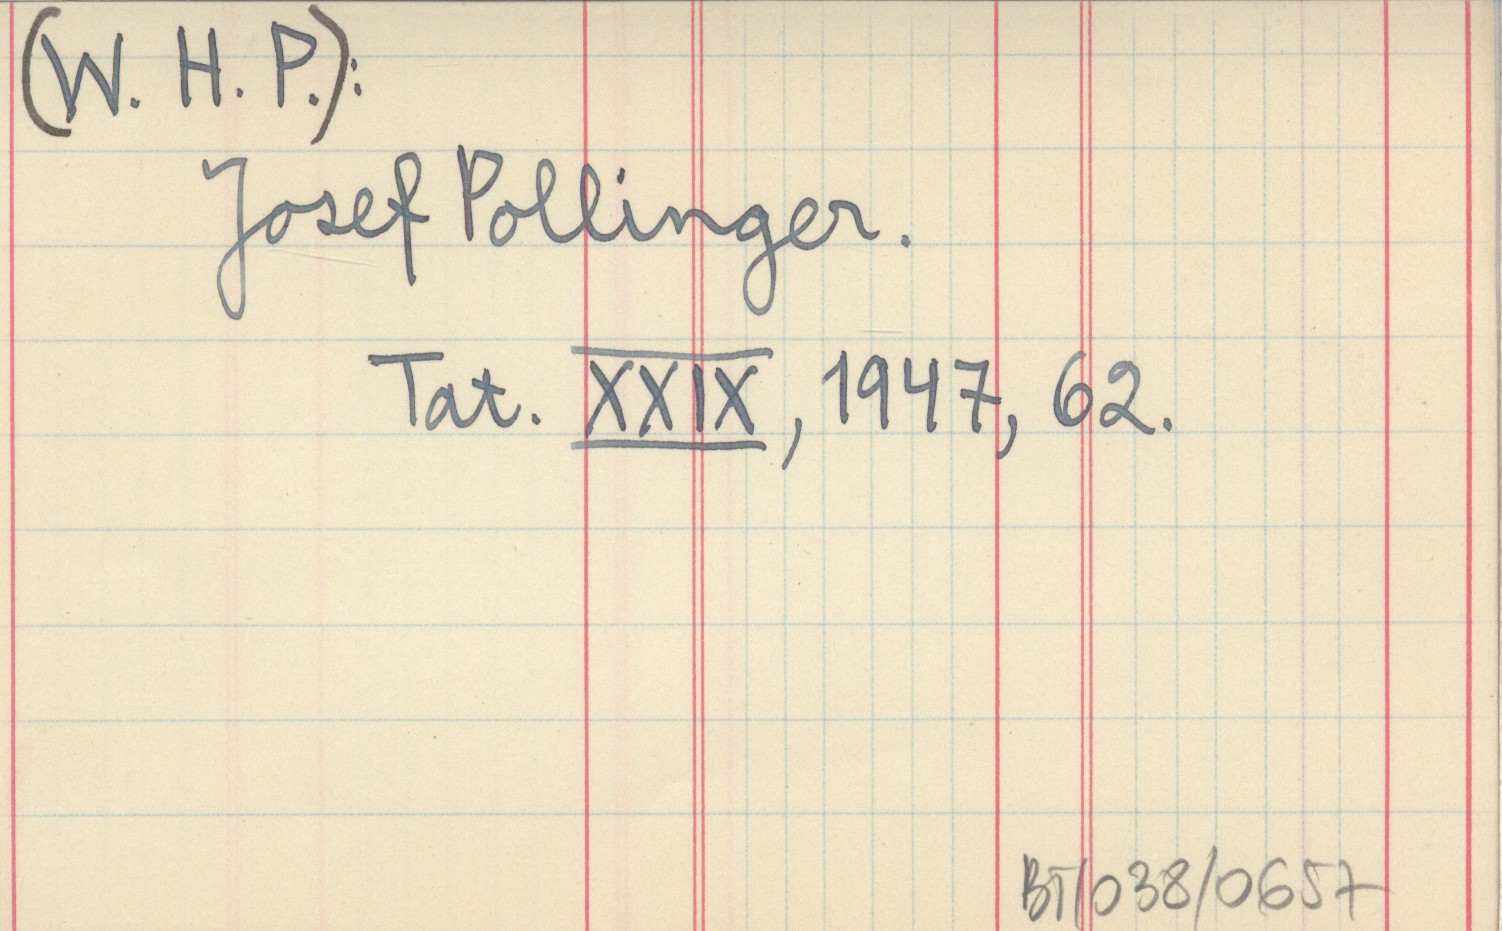 (W. H. P.):
Josef Pollinger.
Tat. XXIX, 1947, 62.
BT/038/0657